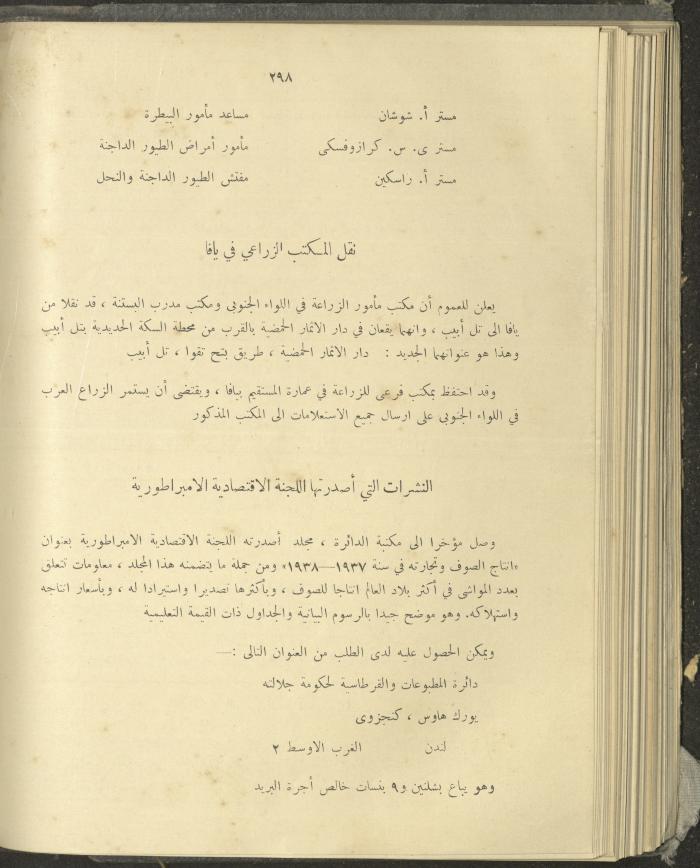 ٢٩٨
مستر أ. شوشان مساعد مأمور البيطرة
مستر ى. س. كرازوفسكى مأمور أمراض الطيور الداجنة
مستر أ. راسكين مفتش الطيور الداجنة والنحل
نقل المكتب الزراعي في يافا
يعلن للعموم أن مكتب مأمور الزراعة في اللواء الجنوبى ومكتب مدرب البستنة ، قد نقلا من
يافا الى تل أبيب ، وانهما يقعان في دار الاثمار الحمضية بالقرب من محطة السكة الحديدية بتل أبيب
وهذا هو عنوانهما الجديد : دار الاثمار الحمضية ، طريق بتح تقوا ، تل أبيب
وقد احتفظ بمكتب فرعى للزراعة في عمارة المستقيم بيافا ، ويقتضى أن يستمر الزراع العرب
في اللواء الجنوبى على ارسال جميع الاستعلامات الى المكتب المذكور
النشرات التي أصدرتها اللجنة الاقتصادية الامبراطورية
وصل مؤخرا الى مكتبة الدائرة ، مجلد أصدرته اللجنة الاقتصادية الامبراطورية بعنوان
«انتاج الصوف وتجارته في سنة ١٩٣٧—١٩٣٨» ومن جملة ما يتضمنه هذا المجلد ، معلومات تتعلق
بعدد المواشى في أكثر بلاد العالم انتاجا للصوف ، وبأكثرها تصديرا واستيرادا له ، وبأسعار انتاجه
واستهلاكه. وهو موضح جيدا بالرسوم البيانية والجداول ذات القيمة التعليمية
ويمكن الحصول عليه لدى الطلب من العنوان التالى :—
دائرة المطبوعات والقرطاسية لحكومة جلالته
يورك هاوس ، كنجزوى
لندن الغرب الاوسط ٢
وهو يباع بشلنين و٩ بنسات خالص أجرة البريد